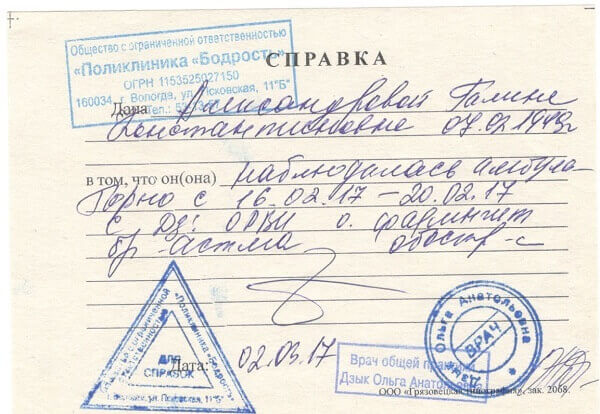 Общество с ограниченной ответственностью
«Поликлиника «Бодрость»
ОГРН 1153525027150
160034, г. Вологда, ул. Псковская, 11"Б"
СПРАВКА
Дана Александровой Галине
Константиновне 07.02.1949г
в том, что он(она) наблюдалась амбула-
торно с 16.02.17 – 20.02.17
с Дз: ОРВИ о. фарингит
бр астма обостр-е
"Поликлиника "Бодрость"
ДЛЯ
СПРАВОК
Дата: 02.03.17
Врач общей практики
Дзык Ольга Анатольевна
Ольга Анатольевна
ВРАЧ
ООО «Грязовецкая типография», зак. 2068.